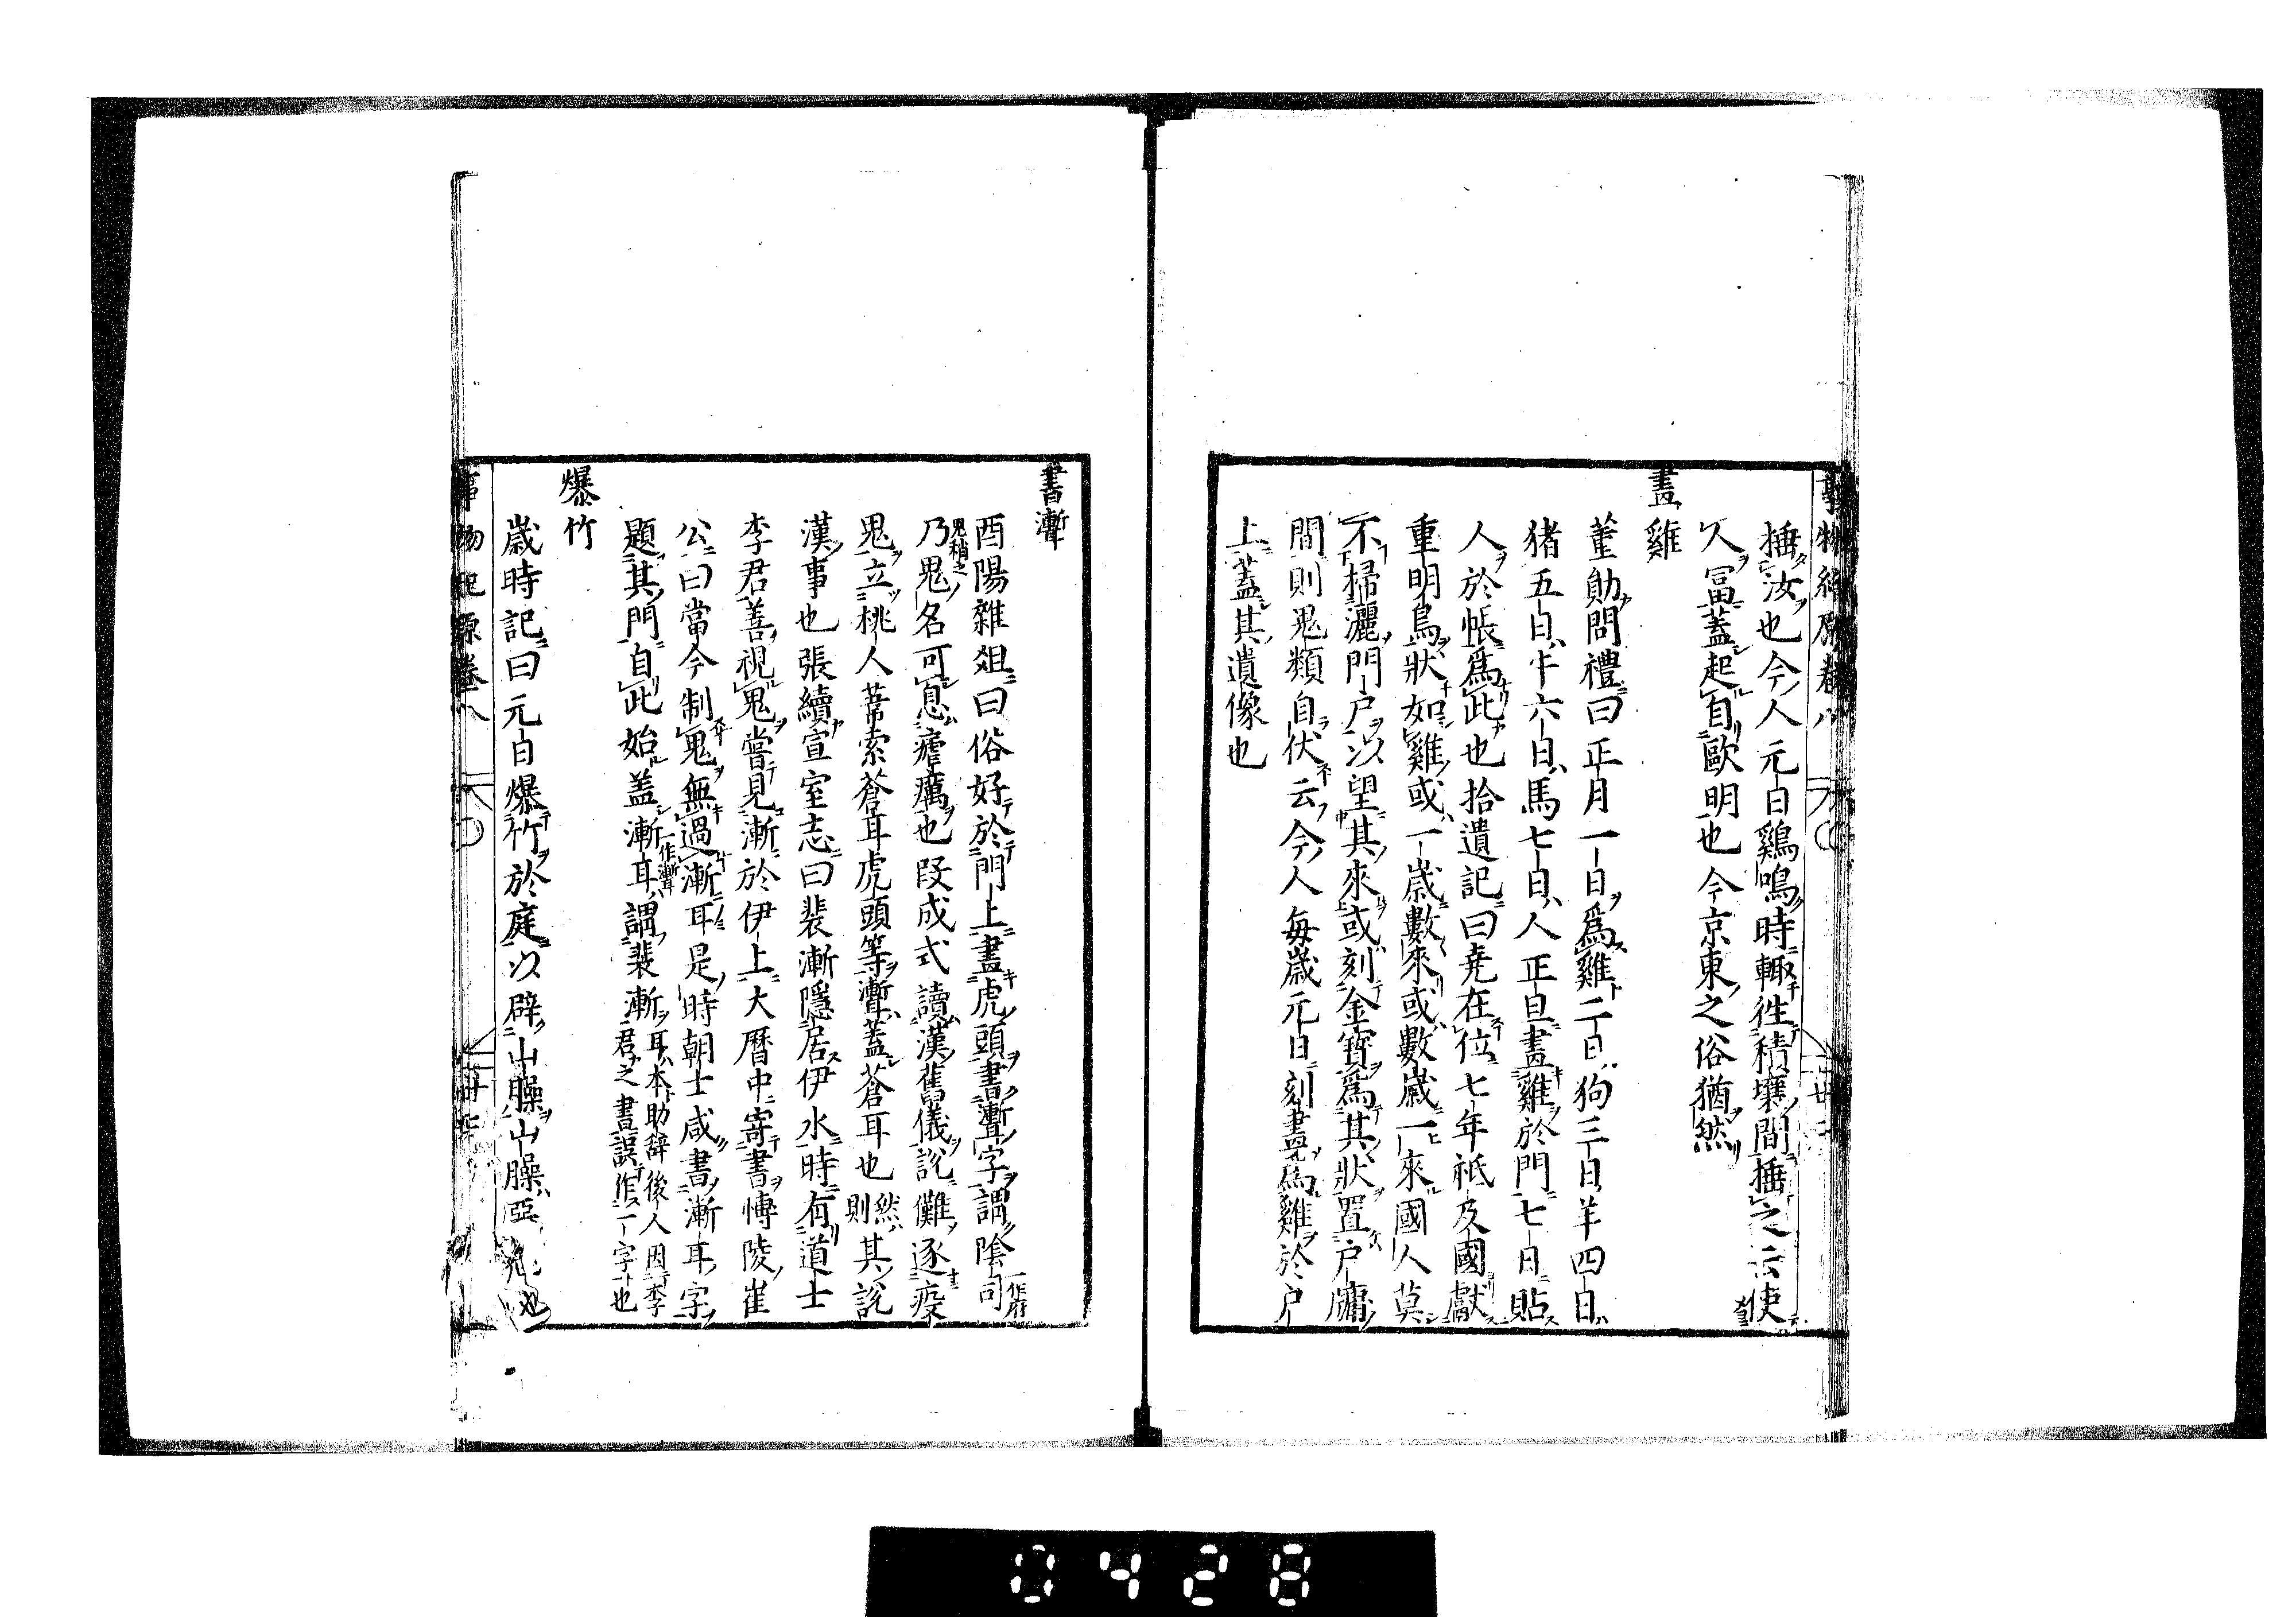 事物紀原卷八
捶汝也今人元日鷄鳴時輙徃積壤間捶之云使
人冨蓋起自歐明也今京東之俗猶然
畫雞
董勛問禮曰正月一日爲雞二日狗三日羊四日
猪五日牛六日馬七日人正旦畫雞於門七日貼
人於帳爲此也拾遺記曰堯在位七年祗及國獻
重明鳥狀如雞或一歲數來或數歲一來國人莫
不掃灑門户以望其來或刻金寶爲其狀置户牖
間則鬼類自伏云今人每歲元日刻畫爲雞於户
上蓋其遺像也
書聻
酉陽雜俎曰俗好於門上畫虎頭書聻字謂陰司
一作府
鬼稱之
乃鬼名可息瘧癘也段成式讀漢舊儀說儺逐疫
鬼立桃人葦索蒼耳虎頭等聻蓋蒼耳也然則其說
漢事也張續宣室志曰裴漸隱居伊水時有道士
李君善視鬼嘗見漸於伊上大曆中寄書慱陵崔
公曰當今制鬼無過漸耳是時朝士咸書漸耳字
題其門自此始蓋漸耳
一作聻
謂裴漸
耳本助辭後人因李
君之書誤作一字也
爆竹
歲時記曰元日爆竹於庭以辟山臊山臊惡鬼也
事物紀原卷八
0428